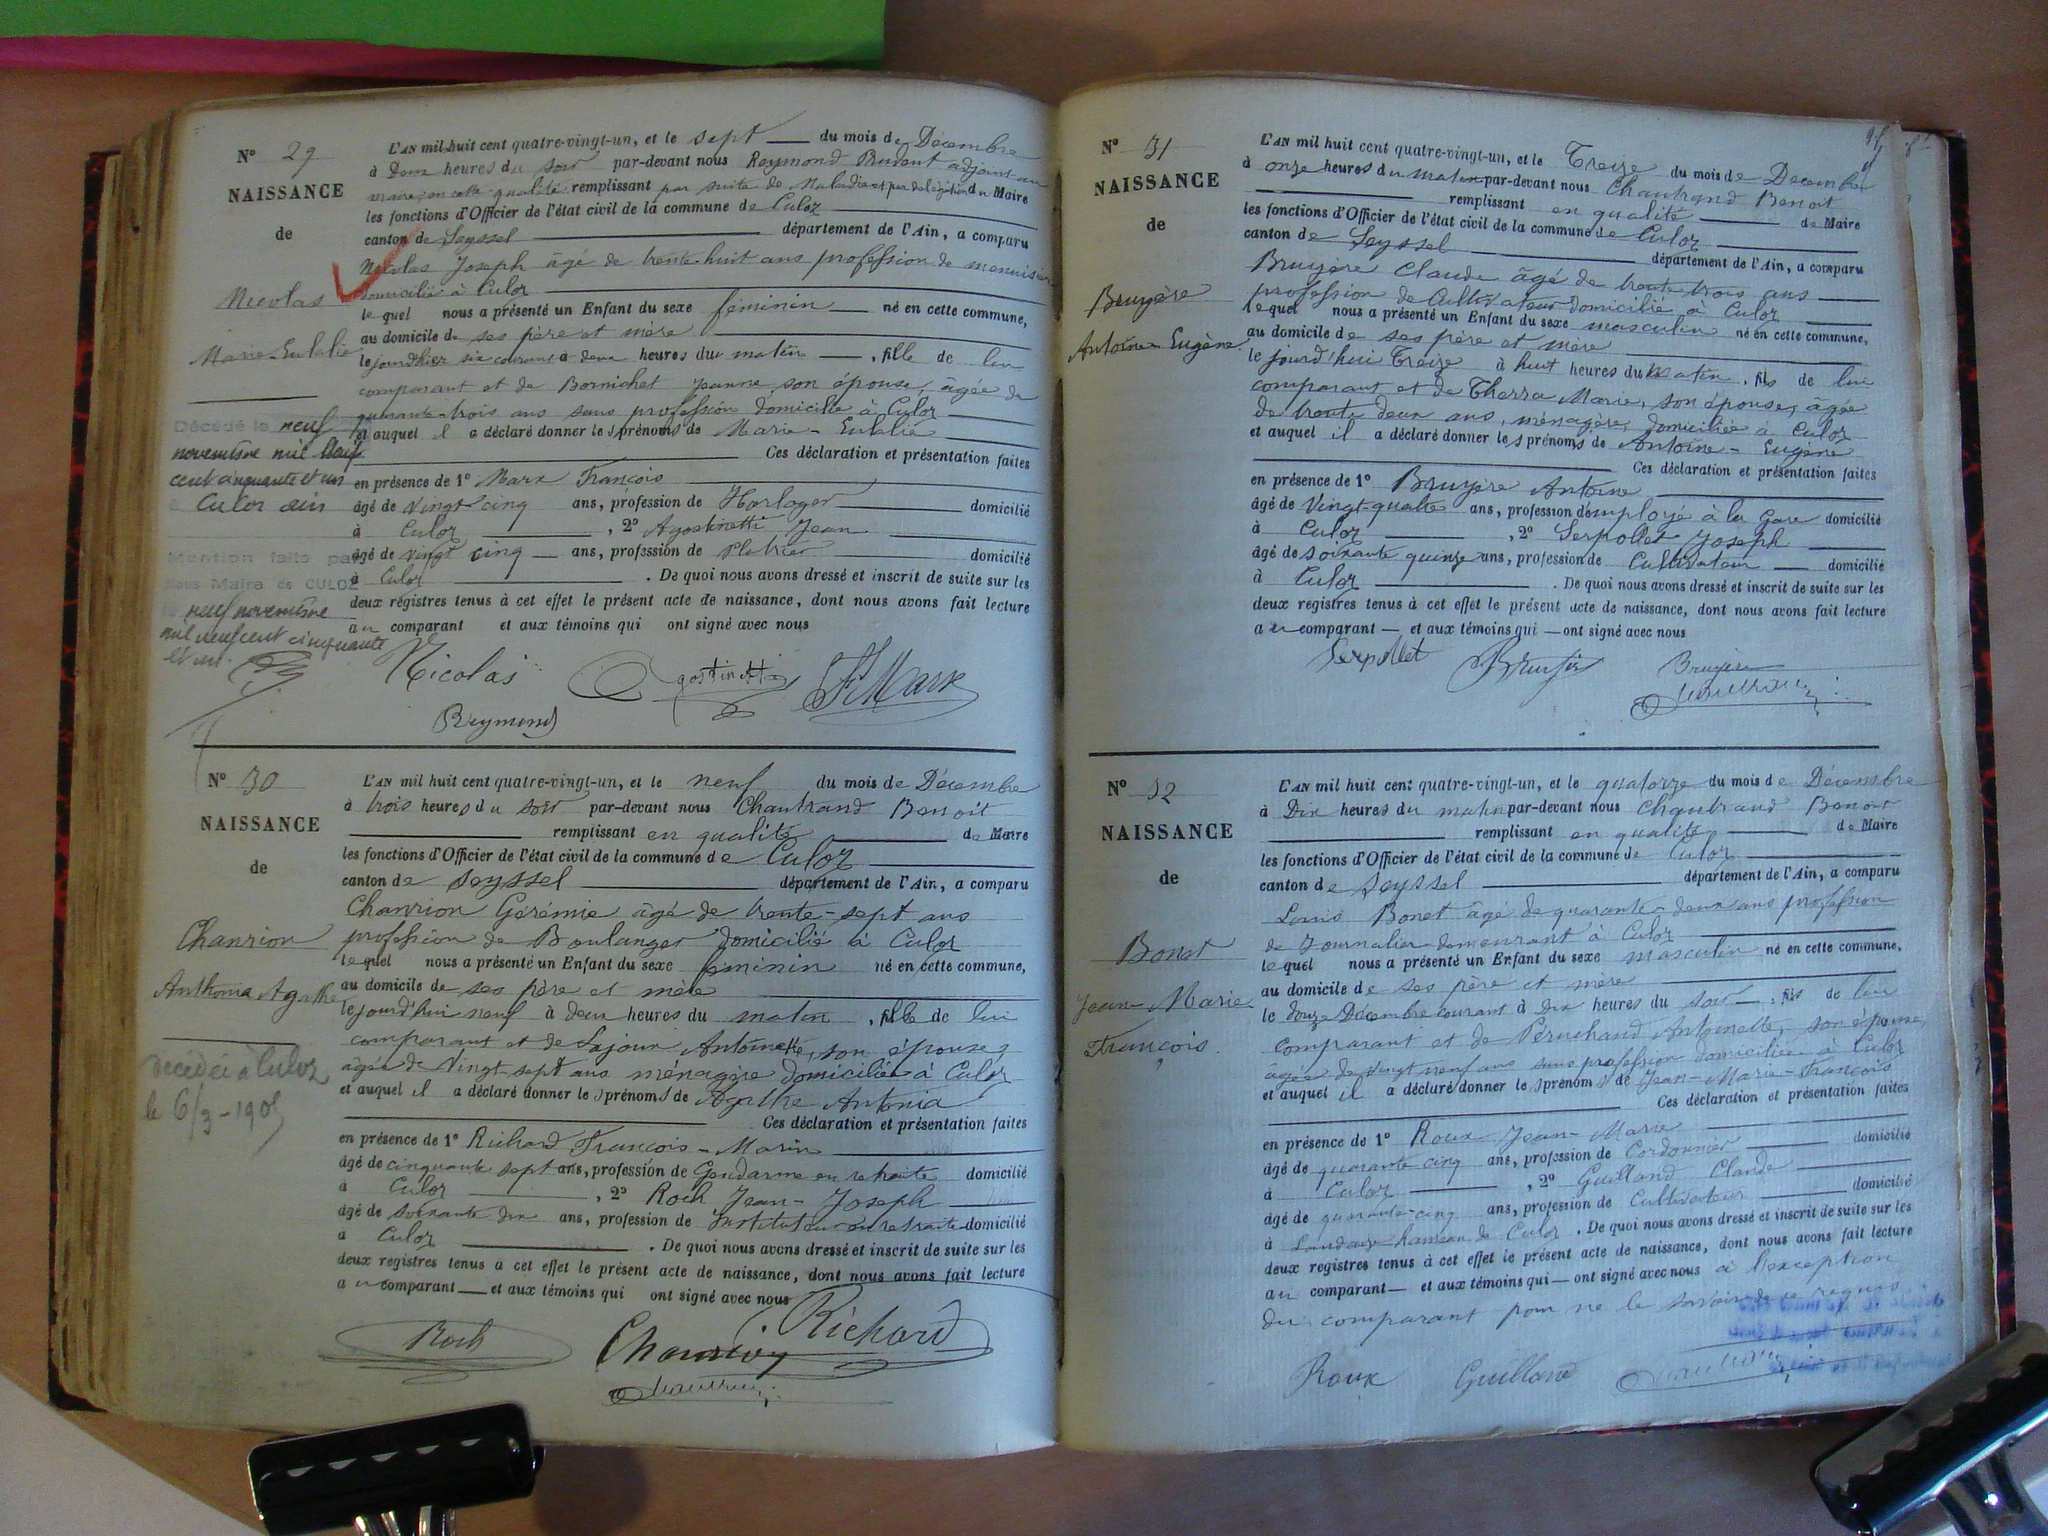 N° 29
NAISSANCE
de
Nicolas
Marie Eulalie
Décédé le neuf
novembre mil neuf
cent cinquante et un
à Culoz ain
Mention faite par
Nous Maire de CULOZ
le neuf novembre
mil neuf cent cinquante
et un.
L'AN mil huit cent quatre-vingt-un, et le sept du mois de Décembre
à Deux heures du soir par-devant nous Reymond Prudent adjoint au
maire, en cette qualité remplissant par suite de Maladie et par délégation du Maire
les fonctions d'Officier de l'état civil de la commune de Culoz
canton de Seyssel département de l'Ain, a comparu
Nicolas Joseph âgé de trente-huit ans profession de menuisier
domicilié à Culoz
lequel nous a présenté un Enfant du sexe féminin né en cette commune,
au domicile de ses père et mère
le jourd'hier six courant à deux heures du matin, fille de lui
comparant et de Bornichet Jeanne son épouse, âgée de
quarante-trois ans sans profession domicilié à Culoz
et auquel il a déclaré donner les prénoms de Marie-Eulalie
Ces déclaration et présentation faites
en présence de 1° Marx François
âgé de vingt cinq ans, profession de Horloger domicilié
à Culoz, 2° Agostinetti Jean
âgé de vingt cinq ans, profession de Platrier domicilié
à Culoz. De quoi nous avons dressé et inscrit de suite sur les
deux registres tenus à cet effet le présent acte de naissance, dont nous avons fait lecture
au comparant et aux témoins qui ont signé avec nous
Nicolas Agostinetti F. Marx
Reymond
N° 30
NAISSANCE
de
Chanrion
Anthonia Agathe
décédée à Culoz
L'AN mil huit cent quatre-vingt-un, et le neuf du mois de Décembre
à trois heures du soir par-devant nous Chautrand Benoit
remplissant en qualité de Maire
les fonctions d'Officier de l'état civil de la commune de Culoz
canton de Seyssel département de l'Ain, a comparu
Chanrion Gérémie âgé de trente-sept ans
profession de Boulanger domicilié à Culoz
lequel nous a présenté un Enfant du sexe féminin né en cette commune,
au domicile de ses père et mère
le jourd'hui neuf à deux heures du matin, fille de lui
comparant et de Lajoux Antoinette, son épouse,
âgée de Vingt sept ans ménagère domiciliée à Culoz
et auquel il a déclaré donner les prénoms de Agathe Antonia
Ces déclaration et présentation faites
en présence de 1° Richard François-Marin
âgé de cinquante sept ans, profession de Gendarme en retraite domicilié
à Culoz, 2° Roch Jean-Joseph
âgé de soixante dix ans, profession de Instituteur en retraite domicilié
à Culoz. De quoi nous avons dressé et inscrit de suite sur les
deux registres tenus à cet effet le présent acte de naissance, dont nous avons fait lecture
au comparant et aux témoins qui ont signé avec nous
Roch Chanrion Richard
N° 31
NAISSANCE
de
Bruyère
Antoine Eugène
L'AN mil huit cent quatre-vingt-un, et le Treize du mois de Décembre
à onze heures du matin par-devant nous Chautrand Benoit
remplissant en qualité de Maire
les fonctions d'Officier de l'état civil de la commune de Culoz
canton de Seyssel département de l'Ain, a comparu
Bruyère Claude âgé de trente trois ans
profession de Cultivateur domicilié à Culoz
lequel nous a présenté un Enfant du sexe masculin né en cette commune,
au domicile de ses père et mère
le jourd'hui Treize à huit heures du Matin, fils de lui
comparant et de Therra Marie, son épouse, âgée
de trente deux ans, ménagère, domiciliée à Culoz
et auquel il a déclaré donner les prénoms de Antoine-Eugène
Ces déclaration et présentation faites
en présence de 1° Bruyère Antoine
âgé de Vingt-quatre ans, profession d'employé à la Gare domicilié
à Culoz, 2° Serpollet Joseph
âgé de soixante quinze ans, profession de Cultivateur domicilié
à Culoz. De quoi nous avons dressé et inscrit de suite sur les
deux registres tenus à cet effet le présent acte de naissance, dont nous avons fait lecture
au comparant et aux témoins qui ont signé avec nous
Serpollet Bruyère Bruyère
N° 32
NAISSANCE
de
Bonet
Jean-Marie
François
L'AN mil huit cent quatre-vingt-un, et le quatorze du mois de Décembre
à Dix heures du matin par-devant nous Chautrand Benoit
remplissant en qualité de Maire
les fonctions d'Officier de l'état civil de la commune de Culoz
canton de Seyssel département de l'Ain, a comparu
Louis Bonet âgé de quarante-deux ans profession
de Journalier demeurant à Culoz
lequel nous a présenté un Enfant du sexe masculin né en cette commune,
au domicile de ses père et mère
le douze Décembre courant à dix heures du soir, fils de lui
comparant et de Péruchand Antoinette, son épouse,
âgée de vingt neuf ans sans profession domiciliée à Culoz
et auquel il a déclaré donner les prénoms de Jean-Marie-François
Ces déclaration et présentation faites
en présence de 1° Roux Jean-Marie
âgé de quarante cinq ans, profession de Cordonnier domicilié
à Culoz, 2° Guilland Claude
âgé de quarante-cinq ans, profession de Cultivateur domicilié
à Landaize hameau de Culoz. De quoi nous avons dressé et inscrit de suite sur les
deux registres tenus à cet effet le présent acte de naissance, dont nous avons fait lecture
au comparant et aux témoins qui ont signé avec nous à l'exception
du comparant pour ne le savoir de ce requis.
Roux Guilland